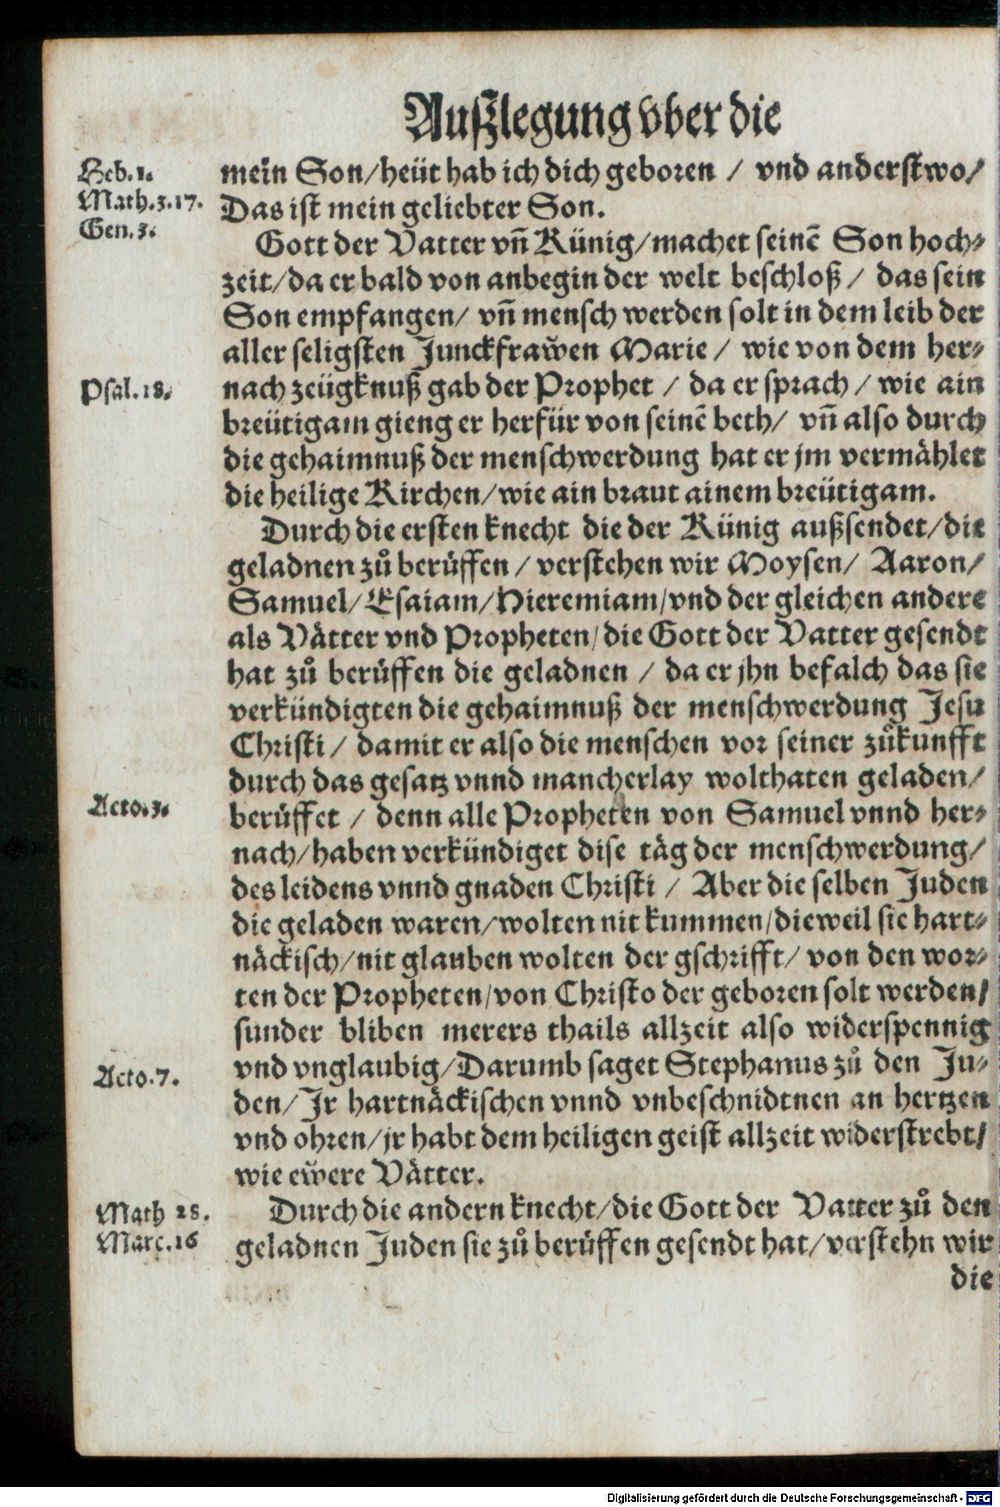 Auſzlegung vber die
Heb.1.
Math.3.17.
Gen.3.
mein Son/heüt hab ich dich geboren / vnd anderſtwo/
Das iſt mein geliebter Son.
Gott der Vatter vñ Künig/machet ſeinē Son hoch⸗
zeit/da er bald von anbegin der welt beſchloß / das ſein
Son empfangen/ vñ menſch werden ſolt in dem leib der
aller ſeligſten Junckfraw̌en Marie / wie von dem her⸗
Pſal.18.
nach zeügknuß gab der Prophet / da er ſprach / wie ain
breütigam gieng er herfür von ſeinē beth/ vñ alſo durch
die gehaimnuß der menſchwerdung hat er jm vermåhlet
die heilige Kirchen/wie ain braut ainem breütigam.
Durch die erſten knecht die der Künig außſendet/die
geladnen zů berüffen / verſtehen wir Moyſen/ Aaron/
Samuel/Eſaiam/Hieremiam/vnd der gleichen andere
als Våtter vnd Propheten/die Gott der Vatter geſendt
hat zů berüffen die geladnen / da er jhn befalch das ſie
verkündigten die gehaimnuß der menſchwerdung Jeſu
Chriſti / damit er alſo die menſchen vor ſeiner zůkunfft
durch das geſatz vnnd mancherlay wolthaten geladen/
Acto.3.
berüffet / denn alle Propheten von Samuel vnnd her⸗
nach/haben verkündiget diſe tåg der menſchwerdung/
des leidens vnnd gnaden Chriſti / Aber die ſelben Juden
die geladen waren/wolten nit kummen/dieweil ſie hart⸗
nåckiſch/nit glauben wolten der gſchrifft/ von den wor⸗
ten der Propheten/von Chriſto der geboren ſolt werden/
ſunder bliben merers thails allzeit alſo widerſpennig
Acto.7.
vnd vnglaubig/Darumb ſaget Stephanus zů den Ju⸗
den/Jr hartnåckiſchen vnnd vnbeſchnidtnen an hertzen
vnd ohren/jr habt dem heiligen geiſt allzeit widerſtrebt/
wie ew̌ere Våtter.
Math 28.
Marc.16
Durch die andern knecht/die Gott der Vatter zů den
geladnen Juden ſie zů berüffen geſendt hat/verſtehn wir
die
Digitalisierung gefördert durch die Deutsche Forschungsgemeinschaft - DFG